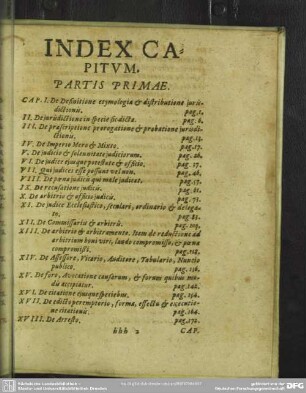 INDEX CA-
PITVM,
PARTIS PRIMAE.
CAP. I. De Definitione etymologia & distributione juris-
dictionis. pag. 1.
II. De jurisdictione in specie sic dicta. pag. 6.
III. De præscriptione prorogatione & probatione jurisdi-
ctionis. pag. 13.
IV. De Imperio Mero & Mixto. pag. 17.
V. De judicio & solennitate judiciorum. pag. 26.
VI. De judice ejusque potestate & officio. pag. 37.
VII. Qui judices esse possunt vel non. pag. 46.
VIII. De pœna judicis qui male judicat. pag. 57.
IX. De recusatione judicis. pag. 61.
X. De arbitrio & officio judicis. pag. 75.
XI. De judice Ecclesiastico, seculari, ordinario & delega-
to. pag. 81.
XII. De Commissariis & arbitris. pag. 105.
XIII. De arbitris & arbitramento. Item de reductione ad
arbitrium boni viri, laudo compromisso, & pœna
compromissi. pag. 123.
XIV. De Assessore, Vicario, Auditore, Tabulario, Nuncio
publico. pag. 136.
XV. De foro, Avocatione causarum, & forum quibus mo-
dis accipiatur. pag. 142.
XVI. De citatione ejusque speciebus. pag. 156.
XVII. De edicto peremptorio, forma, effectu & executio-
ne citationis. pag. 164.
XVIII. De Arresto. pag. 172.
hhh 2 CAP.